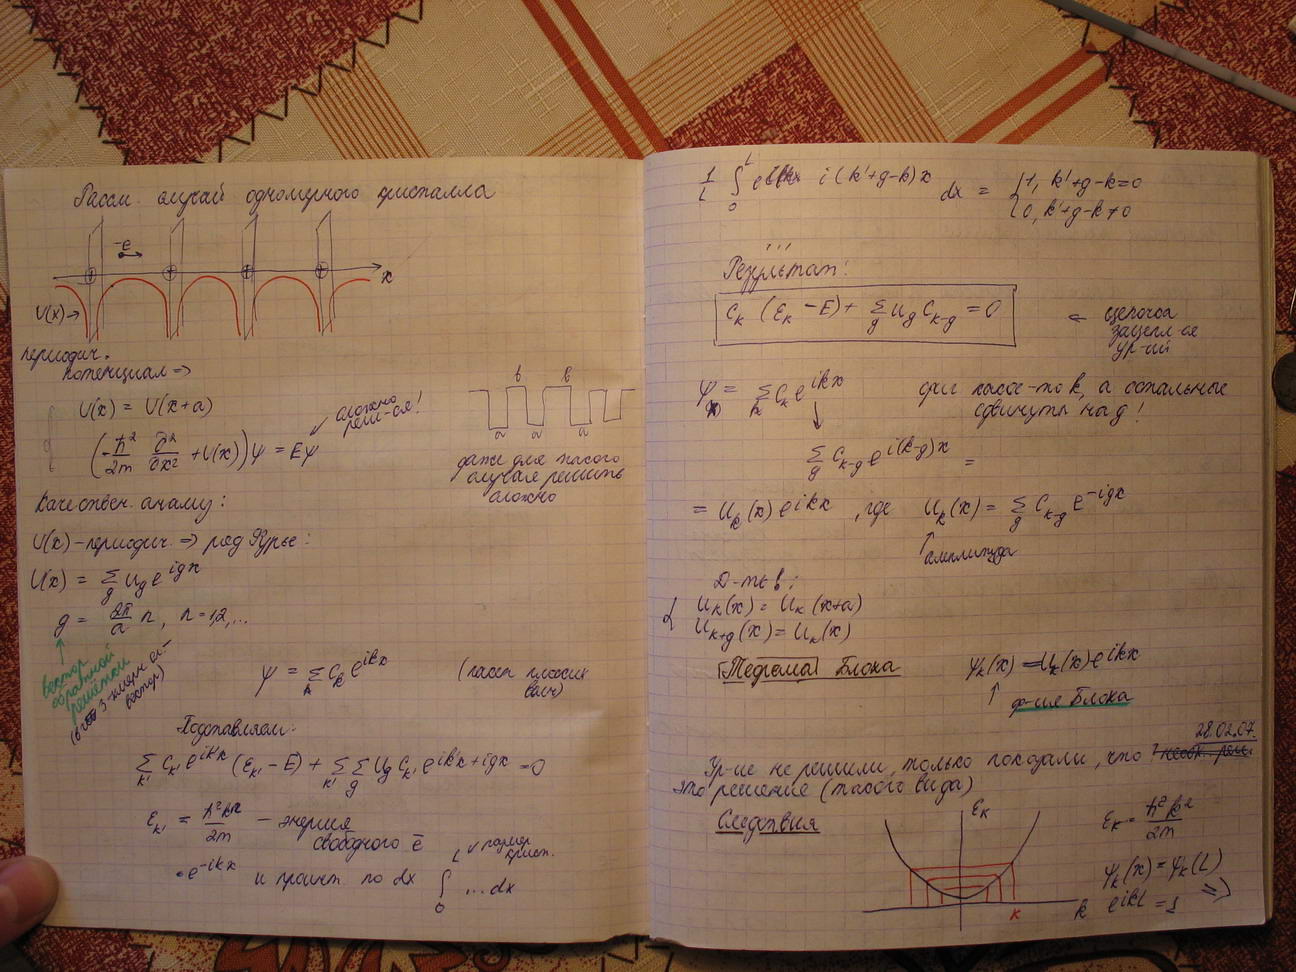 Рассм. случай одномерного кристалла
-e
x
U(x) →
периодич.
потенциал ⇒
U(x) = U(x+a)
(-ħ²/2m ∂²/∂x² + U(x))ψ = Eψ
сложно
реш-ся!
b b
a a a
даже для такого
случая решить
сложно
Качествен. анализ:
U(x) - периодич. ⇒ ряд Фурье:
U(x) = Σ_g U_g e^{igx}
g = 2π/a n, n = 1,2,...
вектор
обратной
решётки
ψ = Σ_k C_k e^{ikx} (пакет плоских
волн)
Подставляем:
Σ_{k'} C_{k'} e^{ik'x} (ε_{k'} - E) + Σ_{k'} Σ_g U_g C_{k'} e^{ik'x+igx} = 0
ε_{k'} = ħ²k²/2m - энергия
свободного ē
· e^{-ikx} и проинт. по dx ∫_0^L ... dx
размер
крист.
1/L ∫_0^L e i(k'+g-k)x dx = {1, k'+g-k=0
0, k'+g-k≠0
Результат:
C_k (ε_k - E) + Σ_g U_g C_{k-g} = 0
← цепочка
зацепл-ся
ур-ий
ψ(x) = Σ_k C_k e^{ikx} фикс какое-то k, а остальные
сдвинуты на g!
Σ_g C_{k-g} e^{i(k-g)x} =
= U_k(x) e^{ikx}, где U_k(x) = Σ_g C_{k-g} e^{-igx}
амплитуда
Д-ть:
U_k(x) = U_k(x+a)
U_{k+g}(x) = U_k(x)
Теорема Блоха ψ_k(x) = U_k(x) e^{ikx}
ф-ия Блоха
28.02.07.
Ур-ие не решили, только показали, что
это решение (такого вида)
Следствия
ε_k
k
k
ε_k = ħ²k²/2m
ψ_k(x) = ψ_k(L)
e^{ikL} = 1 ⇒